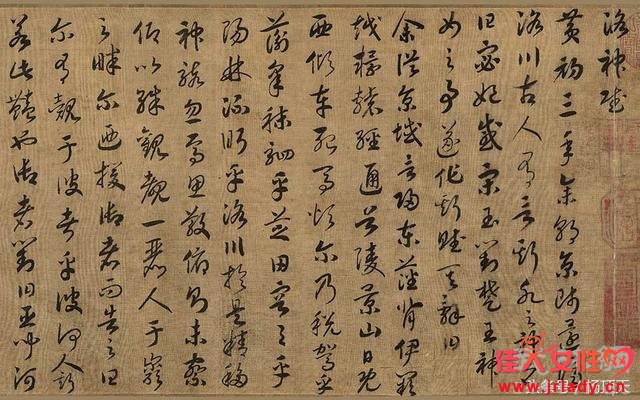 洛神賦
黃初三年余朝京師還濟
洛川古人有言斯水之神名
曰宓妃感宋玉對楚王神
女之事遂作斯賦其辭曰
余從京域言歸東藩背伊闕
越轘轅經通谷陵景山日既
西傾車殆馬煩爾乃稅駕乎
蘅皋秣駟乎芝田容與乎
陽林流眄乎洛川於是精移
神駭忽焉思散俯則未察
仰以殊觀覩一麗人于巖
之畔爾迺援御者而告之曰
爾有覿于彼者乎彼何人斯
若此豔也御者對曰臣聞河
佳人女性网
www.jrlady.cn